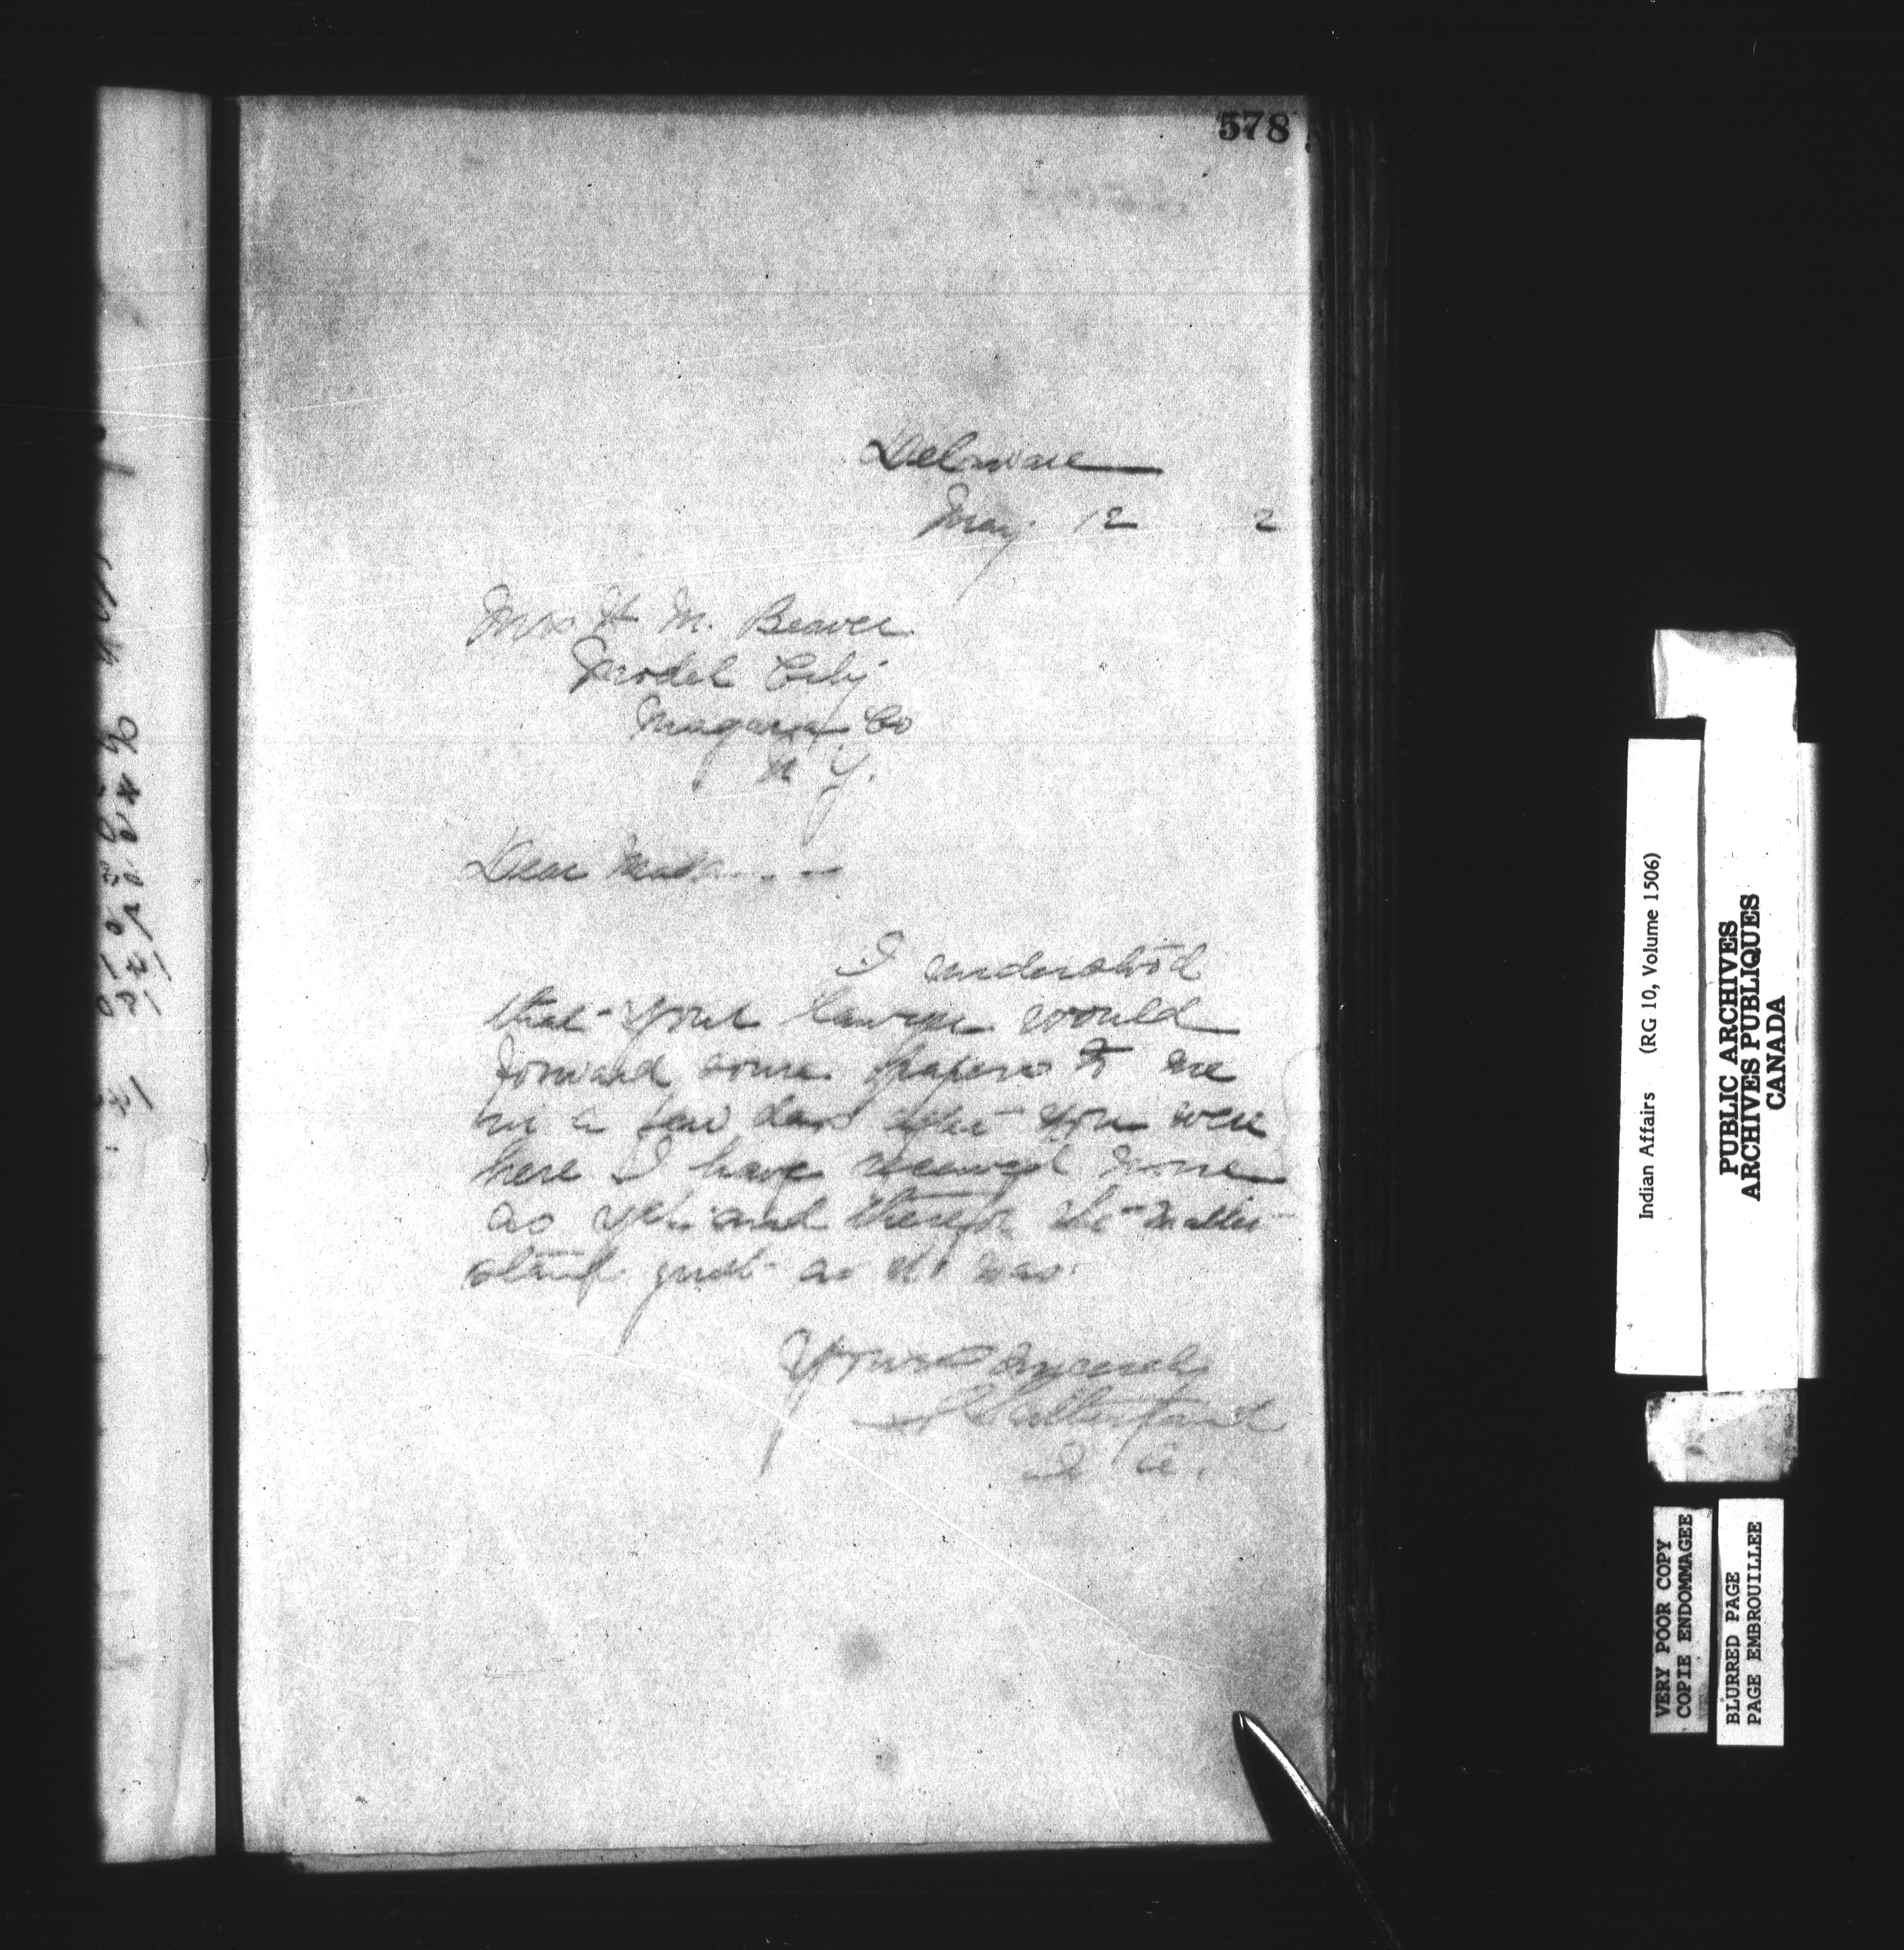 578
Delaware
May 12 2
Mrs. H. M. Beaver
Model City
Niagara Co
N Y.
Dear Madam
I understood
that your lawyer would
forward some papers to me
in a few days after you were
here I have received none
as yet and therefor the matter
stands just as it was.
Yours Sincerely
S Sutherland
I A.
Indian Affairs (RG 10, Volume 1506)
PUBLIC ARCHIVES
ARCHIVES PUBLIQUES
CANADA
VERY POOR COPY
COPIE ENDOMMAGEE
BLURRED PAGE
PAGE EMBROUILLEE